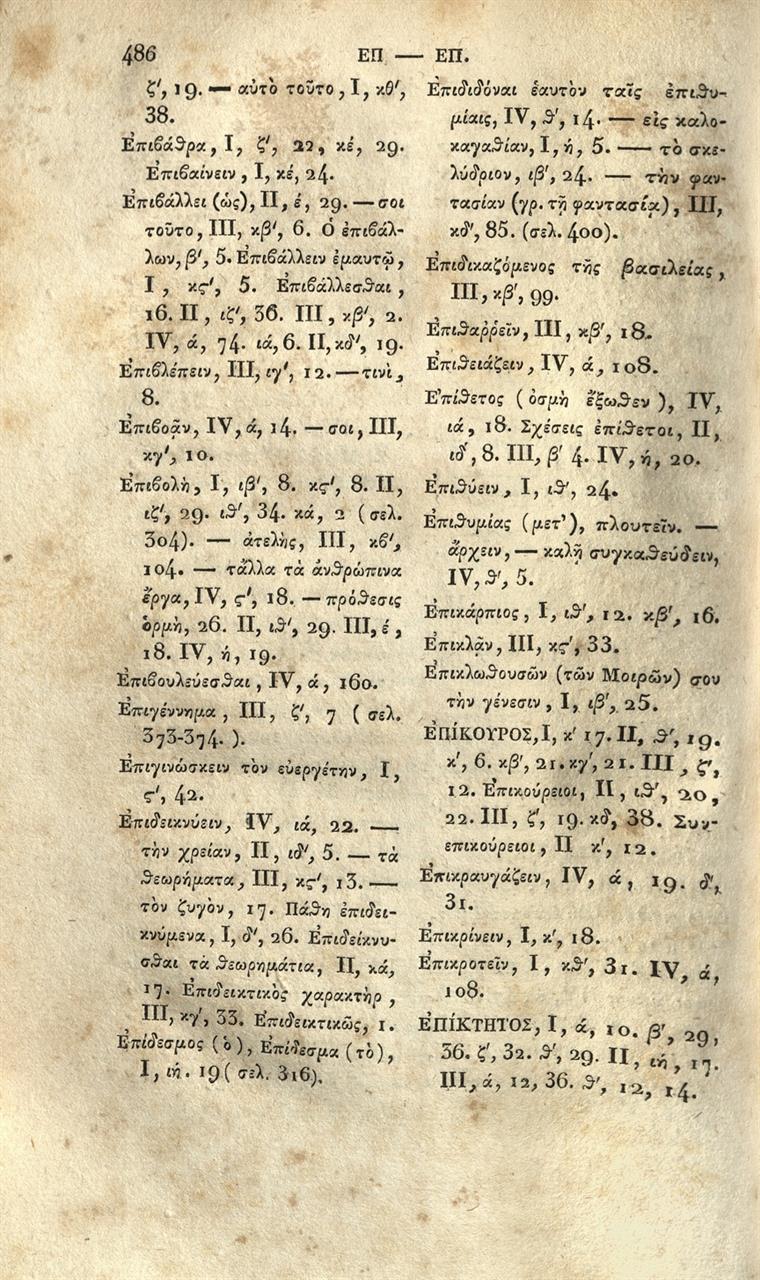 486 ΕΠ — ΕΠ.
ζ′, 19. — αὐτὸ τοῦτο, I, κθ′,
38.
Ἐπιβάθρα, I, ζ′, 22, κέ, 29.
Ἐπιβαίνειν, I, κέ, 24.
Ἐπιβάλλει (ὡς), II, έ, 29. — σοι
τοῦτο, III, κβ′, 6. Ὁ ἐπιβάλ-
λων, β′, 5. Ἐπιβάλλειν ἐμαυτῷ,
I, κς′, 5. Ἐπιβάλλεσθαι,
16. II, ιζ′, 36. III, κβ′, 2.
IV, ά, 74. ιά, 6. II, κδ′, 19.
Ἐπιβλέπειν, III, ιγ′, 12. — τινὶ,
8.
Ἐπιβοᾷν, IV, ά, 14. — σοι, III,
κγ′, 10.
Ἐπιβολὴ, I, ιβ′, 8. κς′, 8. II,
ιζ′, 29. ιθ′, 34. κά, 2 (σελ.
304). — ἀτελὴς, III, κβ′,
104. — τἄλλα τὰ ἀνθρώπινα
ἔργα, IV, ς′, 18. — πρόθεσις
ὁρμὴ, 26. II, ιθ′, 29. III, έ,
18. IV, ή, 19.
Ἐπιβουλεύεσθαι, IV, ά, 160.
Ἐπιγέννημα, III, ζ′, 7 (σελ.
373-374.).
Ἐπιγινώσκειν τὸν εὐεργέτην, I,
ς′, 42.
Ἐπιδεικνύειν, IV, ιά, 22. —
τὴν χρείαν, II, ιδ′, 5. — τὰ
θεωρήματα, III, κς′, 13. —
τὸν ζυγὸν, 17. Πάθη ἐπιδει-
κνύμενα, I, δ′, 26. Ἐπιδείκνυ-
σθαι τὰ θεωρημάτια, II, κά,
17. Ἐπιδεικτικὸς χαρακτὴρ,
III, κγ′, 33. Ἐπιδεικτικῶς, 1.
Ἐπίδεσμος (ὁ), Ἐπίδεσμα (τὸ),
I, ιή. 19 (σελ. 316).
Ἐπιδιδόναι ἑαυτὸν ταῖς ἐπιθυ-
μίαις, IV, θ′, 14. — εἰς καλο-
καγαθίαν, I, ή, 5. — τὸ σκε-
λύδριον, ιβ′, 24. — τὴν φαν-
τασίαν (γρ. τῇ φαντασίᾳ), III,
κδ′, 85. (σελ. 400).
Ἐπιδικαζόμενος τῆς βασιλείας,
III, κβ′, 99.
Ἐπιθαῤῥεῖν, III, κβ′, 18.
Ἐπιθειάζειν, IV, ά, 108.
Ἐπίθετος (ὀσμὴ ἔξωθεν), IV,
ιά, 18. Σχέσεις ἐπίθετοι, II,
ιδ′, 8. III, β′ 4. IV, ή, 20.
Ἐπιθύειν, I, ιθ′, 24.
Ἐπιθυμίας (μετ'), πλουτεῖν. —
ἄρχειν, — καλῇ συγκαθεύδειν,
IV, θ′, 5.
Ἐπικάρπιος, I, ιθ′, 12. κβ′, 16.
Ἐπικλᾷν, III, κς′, 33.
Ἐπικλωθουσῶν (τῶν Μοιρῶν) σου
τὴν γένεσιν, I, ιβ′, 25.
ἘΠΊΚΟΥΡΟΣ, I, κ′ 17. II, θ′, 19.
κ′, 6. κβ′, 21. κγ′, 21. III, ζ′,
12. Ἐπικούρειοι, II, ιθ′, 20,
22. III, ζ′, 19. κδ′, 38. Συν-
επικούρειοι, II κ′, 12.
Ἐπικραυγάζειν, IV, ά, 19. δ′,
31.
Ἐπικρίνειν, I, κ′, 18.
Ἐπικροτεῖν, I, κθ′, 31. IV, ά,
108.
ἘΠΊΚΤΗΤΟΣ, I, ά, 10. β′, 29,
36. ζ′, 32. θ′, 29. II, ιή, 17.
III, ά, 12, 36. θ′, 12, 14.